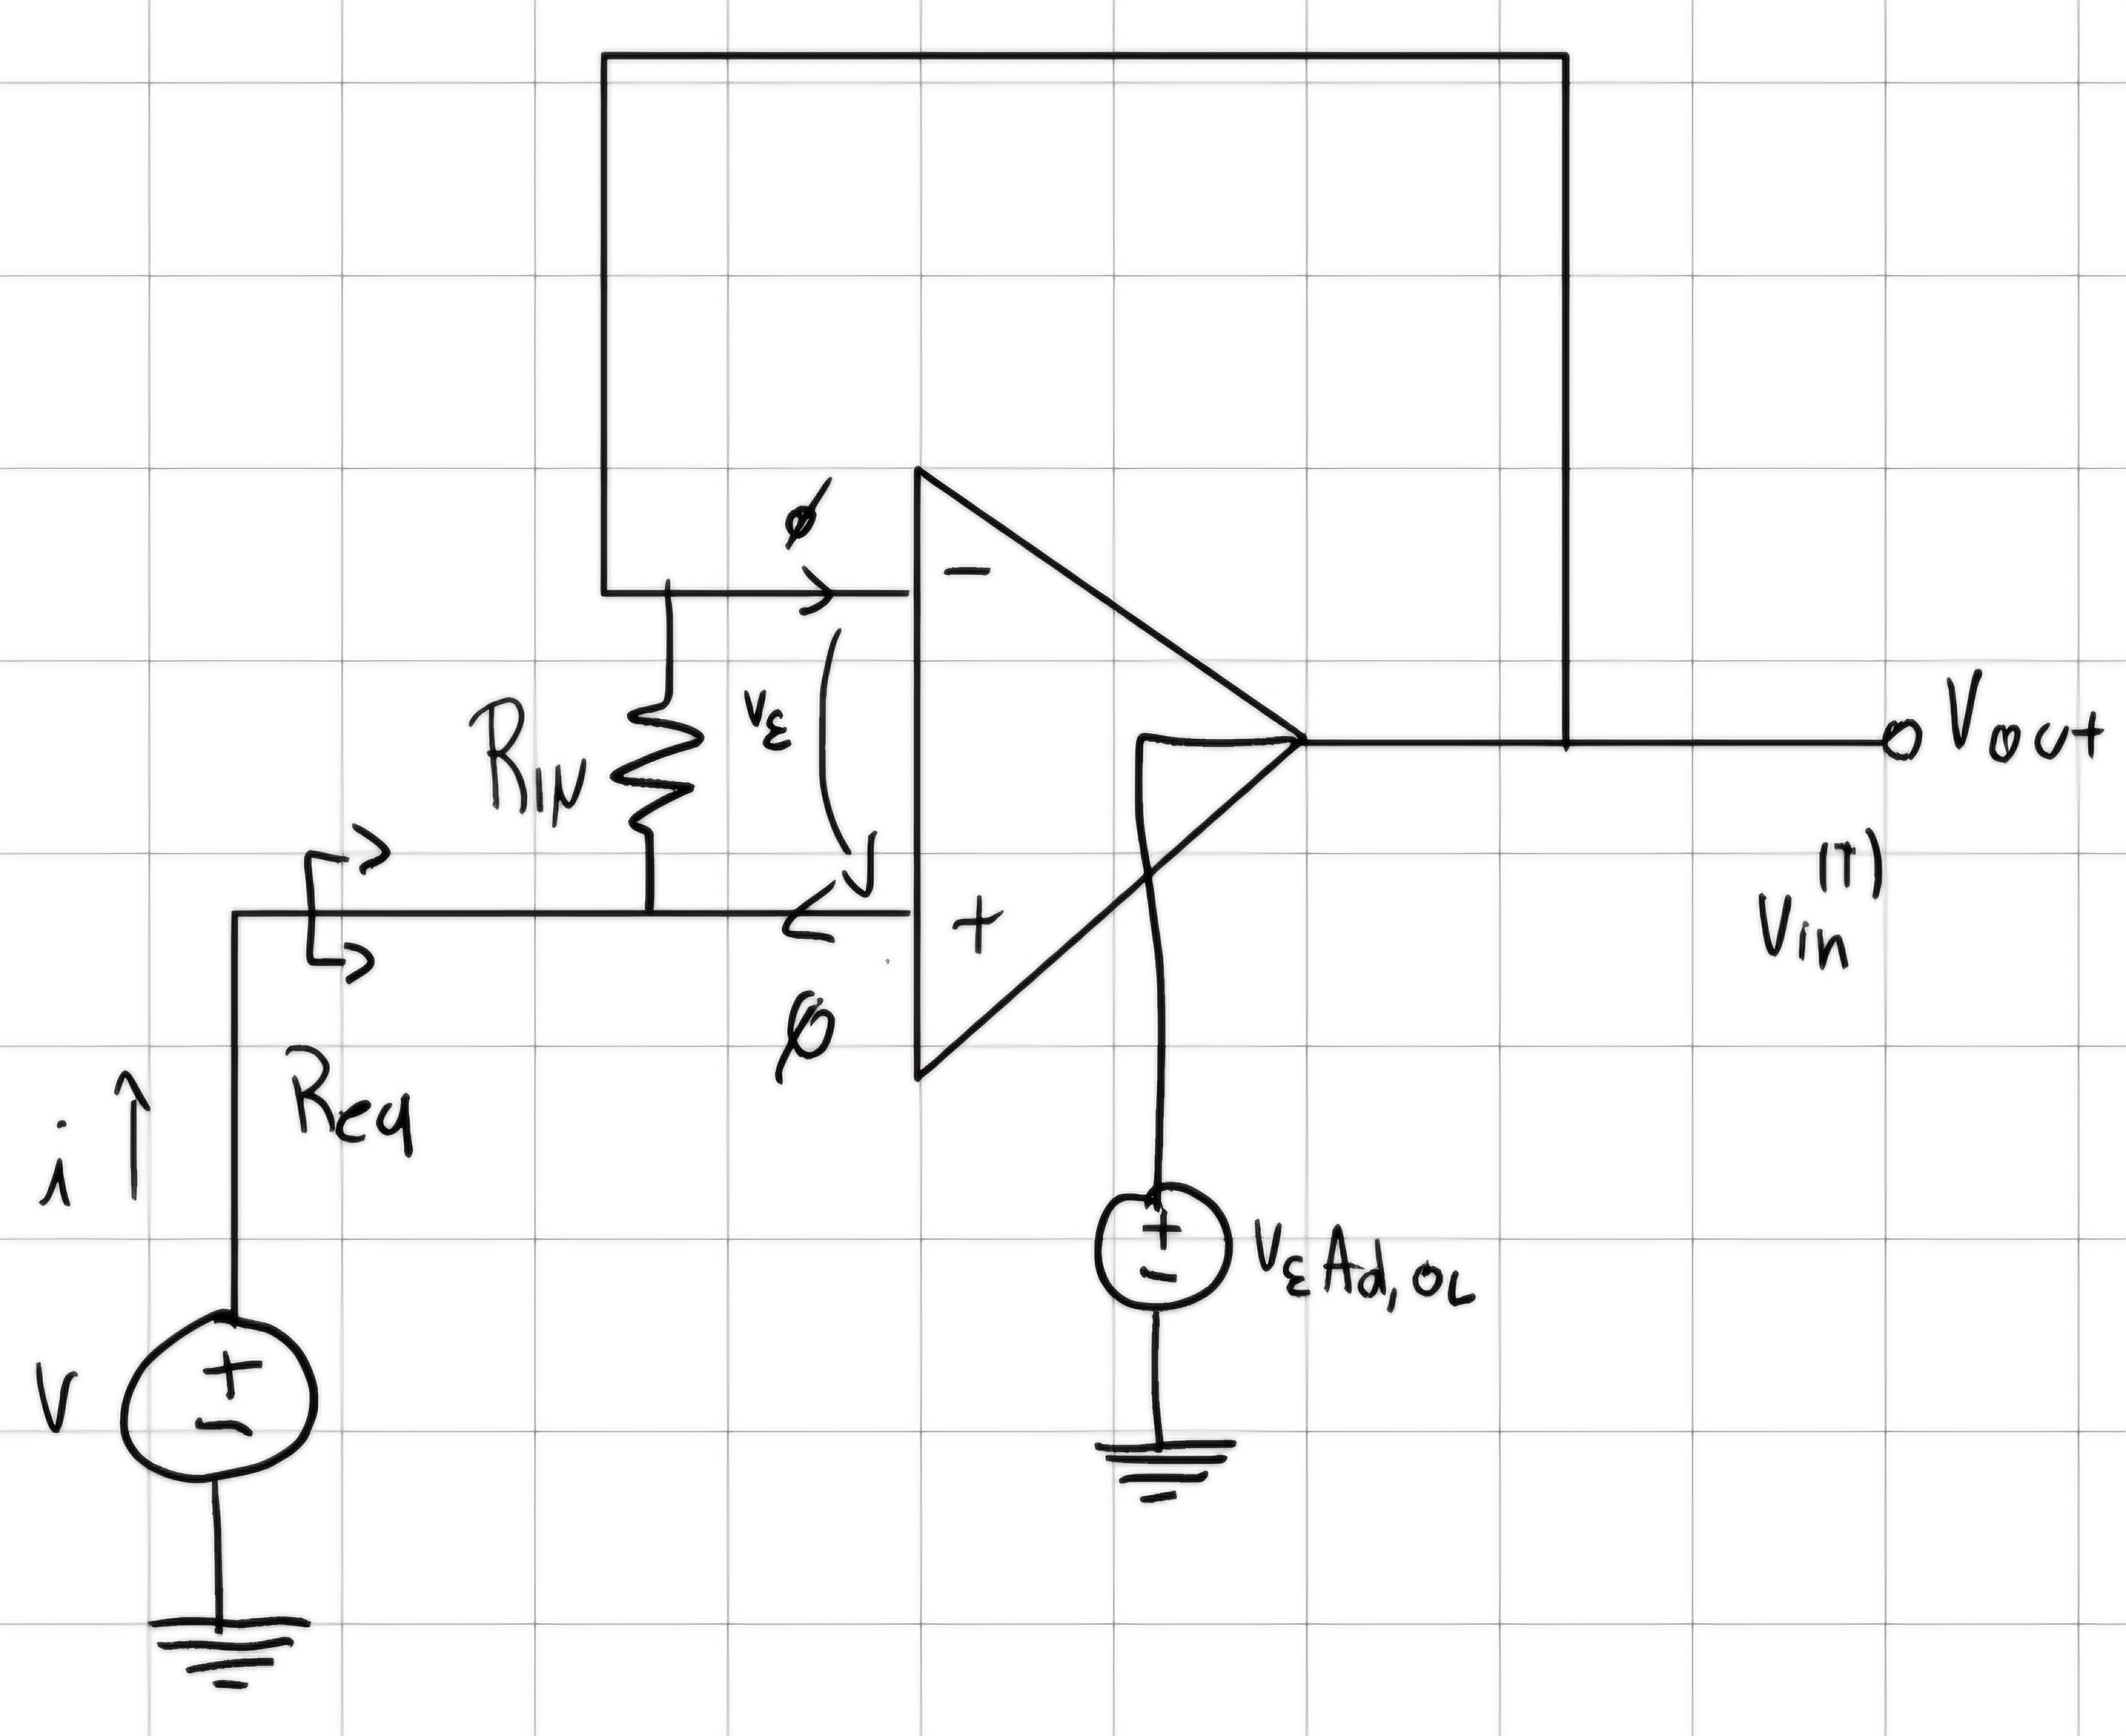 ∅
−
vε
RIN
Vout
(π)
Vin
+
∅
Req
i
+
−
vεAd,OL
V
+
−